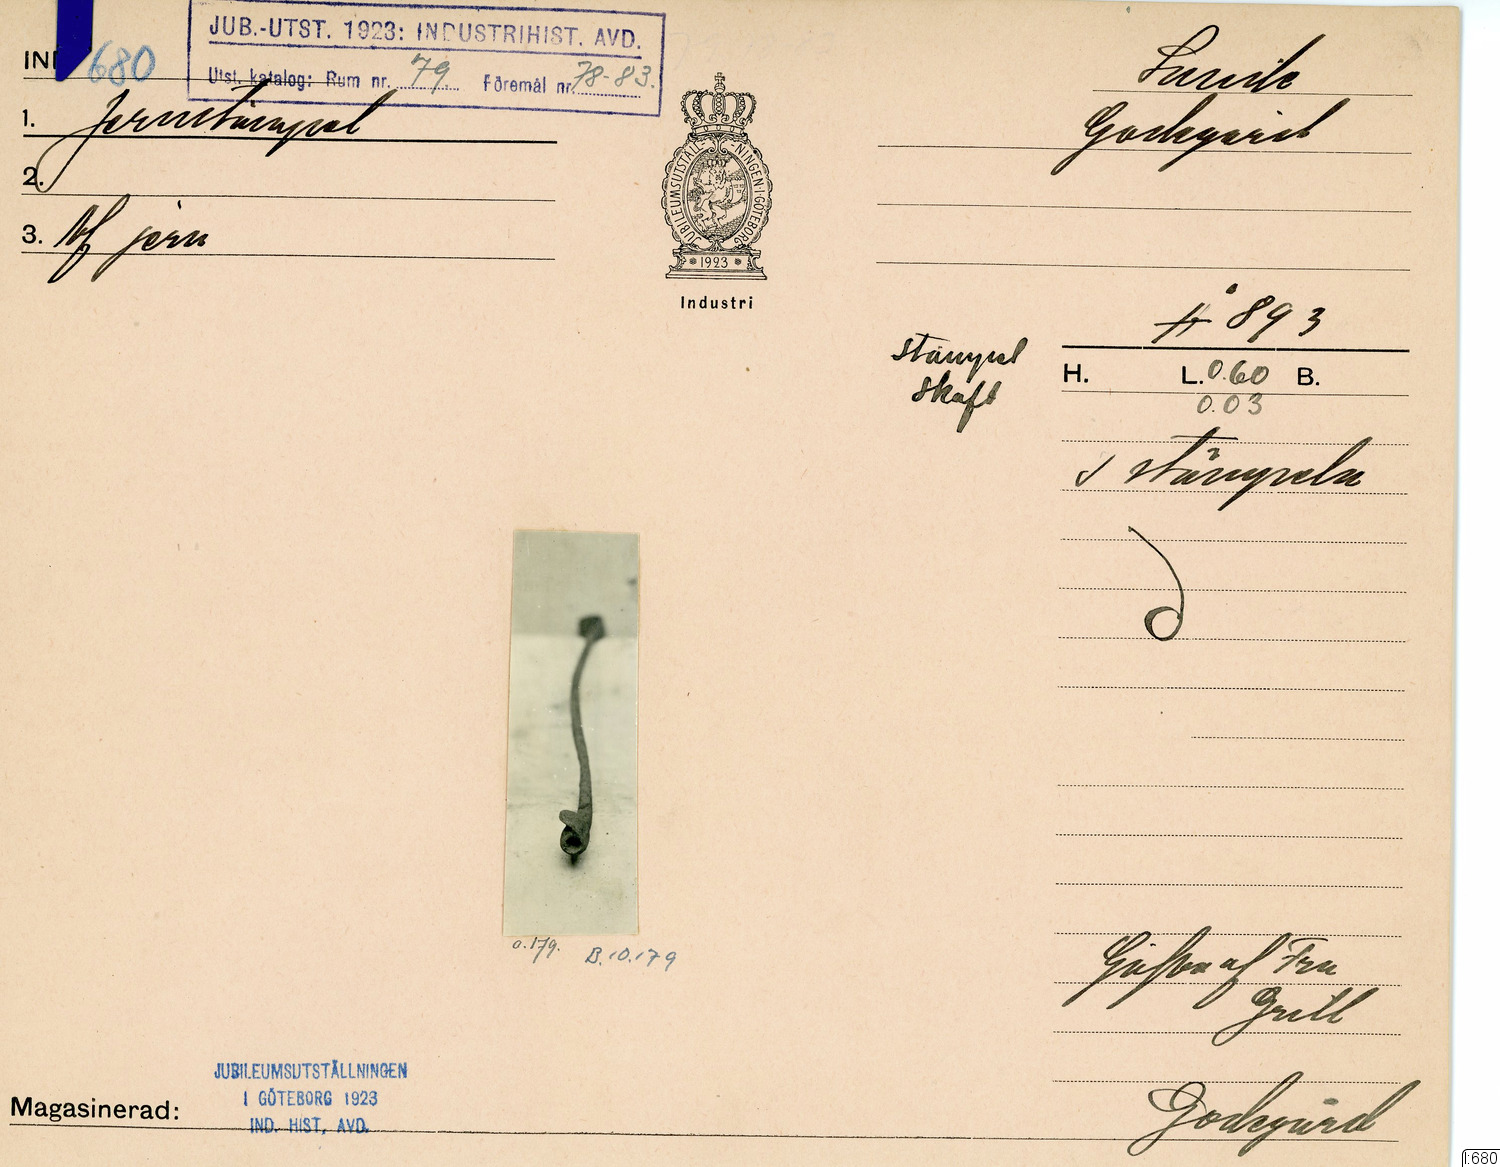 JUB.-UTST. 1923: INDUSTRIHIST. AVD.
Utst. katalog: Rum nr. 79. Föremål nr. 78-83.
680
1. Jernstämpel
2.
3. Af jern
JUBILEUMSUTSTÄLLNINGEN·I·GÖTEBORG
1923
Industri
Godegård
893
stämpel
skaft
H. L. 0.60 B.
0.03
stämpeln
a.179. B.10.179
Gåfva af Fru
Grill
JUBILEUMSUTSTÄLLNINGEN
I GÖTEBORG 1923
IND. HIST. AVD.
Magasinerad:
Godegård
I:680